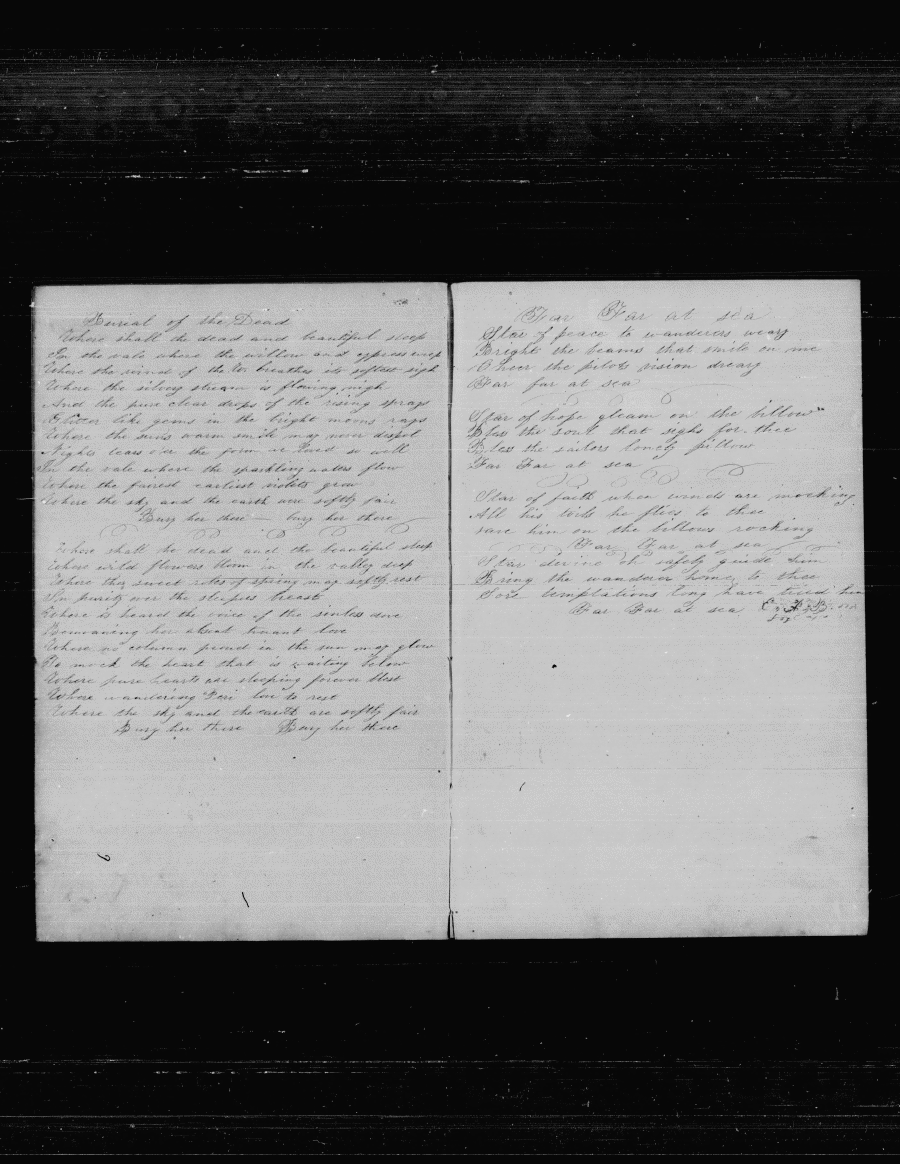 Burial of the Dead
Where shall the dead and beautiful sleep
In the vale where the willow and cypress weep
Where the wind of the breathes its softest sigh
Where the silvery stream is flowing nigh
And the pure clear drops of the rising sprays
Glitter like gems in the bright moons rays
Where the suns warm smile may never dispel
Nights tears o'er the form we loved so well
In the vale where the sparkling waters flow
Where the fairest earliest violets grow
Where the sky and the earth are softly fair
Bury her there — bury her there
Where shall the dead and the beautiful sleep
Where wild flowers bloom in the valley deep
Where the sweet robes of spring may softly rest
In purity over the sleepers breast
Where is heard the voice of the sinless dove
Bemoaning her absent truant love
Where no column proud in the sun may glow
To mock the heart that is waiting below
Where pure hearts are sleeping forever blest
Where wandering Peri love to rest
Where the sky and the earth are softly fair
Bury her there Bury her there
Far Far at sea
Star of peace to wanderers weary
Bright the beams that smile on me
Cheer the pilots vision dreary
Far far at sea
Star of hope gleam on the billow
Bless the soul that sighs for thee
Bless the sailors lonely pillow
Far Far at sea
Star of faith when winds are mocking
All his toils he flies to thee
save him on the billows rocking
Far Far at sea
Star divine oh safely guide him
Bring the wanderer home to thee
Sore temptations long have tried him
Far Far at sea